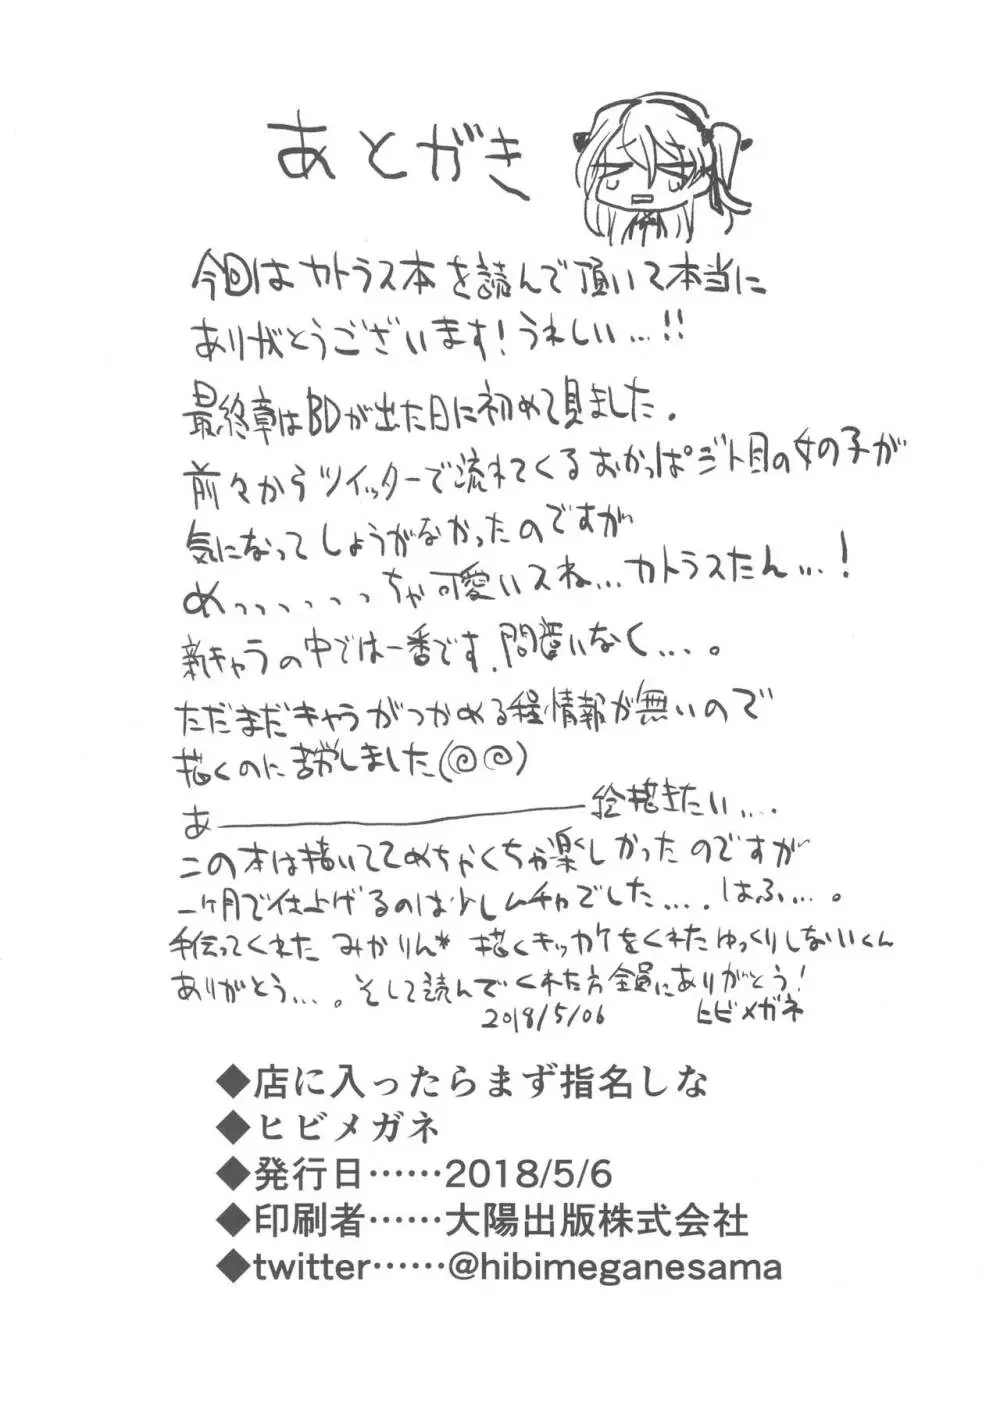 あとがき
今回はカトラス本を読んで頂いて本当に
ありがとうございます！うれしい…!!
最終章はBDが出た日に初めて見ました。
前々からツイッターで流れてくるおかっぱジト目の女の子が
気になってしょうがなかったのですが
めっっっっっっちゃ可愛いスね…カトラスたん…！
新キャラの中では一番です、間違いなく…。
ただまだキャラがつかめる程情報が無いので
描くのに苦労しました(@@)
あ――――――絵描きたい…
この本は描いててめちゃくちゃ楽しかったのですが
一ヶ月で仕上げるのは少しムチャでした…。はふ…。
手伝ってくれたみかりん* 描くキッカケをくれたゆっくりしないくん
ありがとう…。そして読んでくれた方全員にありがとう！
2018/5/06 ヒビメガネ
◆店に入ったらまず指名しな
◆ヒビメガネ
◆発行日……2018/5/6
◆印刷者……大陽出版株式会社
◆twitter……@hibimeganesama